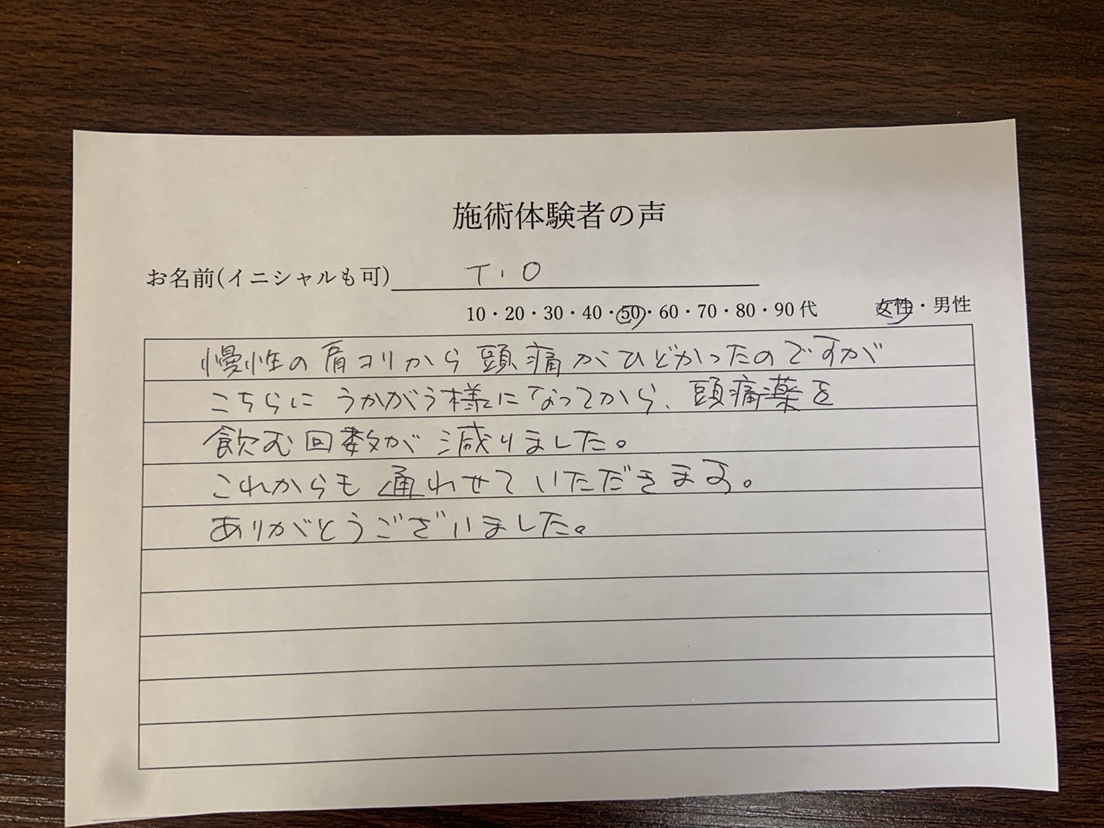 施術体験者の声
お名前(イニシャルも可) T.O
10・20・30・40・50・60・70・80・90代 女性・男性
慢性の肩コリから頭痛がひどかったのですが
こちらにうかがう様になってから、頭痛薬を
飲む回数が減りました。
これからも通わせていただきます。
ありがとうございました。